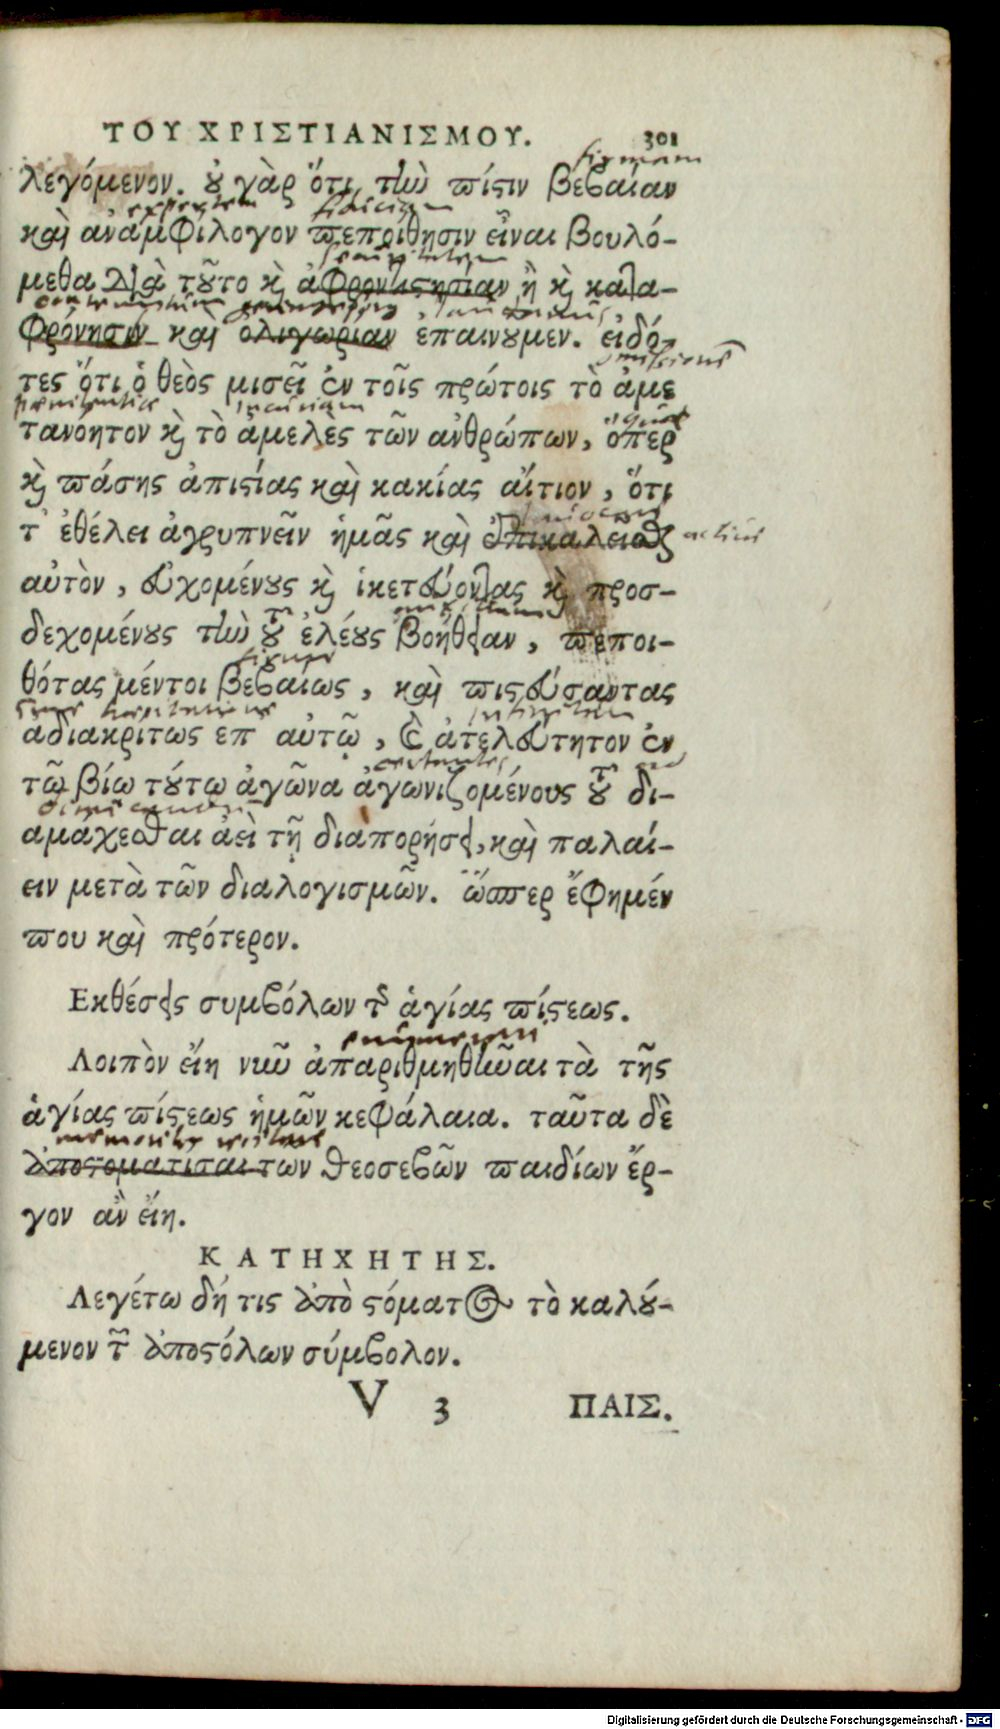 ΤΟΥ ΧΡΙΣΤΙΑΝΙΣΜΟΥ. 301
λεγόμενον. ȣ γὰρ ὅτι τὴν πίϛιν βεβαίαν
καὶ αναμφίλογον πεποίθησιν εἶναι βουλό-
μεθα διὰ τȣ͂το κ̀ αφροντιϛησίαν ἢ κ̀ κατα-
φρόνησιν καὶ ολιγωρίαν επαινȣμεν. ειδό-
τες ὅτι ὁ θεὸς μισεῖ ἐν τοῖς πρώτοις τὸ ἀμε
τανόητον κ̀ τὸ ἀμελὲς τῶν ἀνθρώπων, ὅπερ
κ̀ πάσης ἀπιϛίας καὶ κακίας αἴτιον, ὅτι
τ᾽ ἐθέλει ἀγρυπνεῖν ἡμᾶς καὶ ἐπικαλεῖσθαι
αὐτὸν, εὐχομένȣς κ̀ ἱκετεύοντας κ̀ προσ-
δεχομένȣς τὴν τȣ͂ ἐλέȣς βοήθειαν, πεποι-
θότας μέντοι βεβαίως, καὶ πιϛεύσαντας
αδιακρίτως επ᾽ αὐτῷ, καὶ ἀτελεύτητον ἐν
τῷ βίω τȣ́τῳ ἀγῶνα ἀγωνιζομένους τȣ͂ δι-
αμάχεσθαι ἀεὶ τῇ διαπορήσει, καὶ παλαί-
ειν μετὰ τῶν διαλογισμῶν. ὥσπερ ἔφημέν
που καὶ πρότερον.
Εκθέσεις συμβόλων τ῀ ἁγίας πίϛεως.
Λοιπὸν εἴη νῦν ἀπαριθμηθῆναι τὰ τῆς
ἁγίας πίϛεως ἡμῶν κεφάλαια. ταῦτα δὲ
ἀποϛοματίσαι των θεοσεβῶν παιδίων ἔρ-
γον ἂν εἴη.
ΚΑΤΗΧΗΤΗΣ.
Λεγέτω δή τις ἀπὸ ϛόματος τὸ καλȣ́-
μενον τ῀ ἀποϛόλων σύμβολον.
V 3 ΠΑΙΣ.
Digitalisierung gefördert durch die Deutsche Forschungsgemeinschaft - DFG